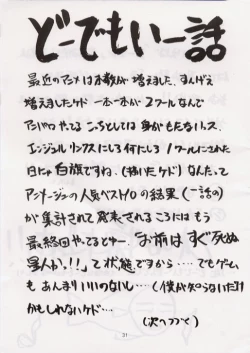 どーでもいー話
最近のアニメは本数が増えました、すんげぇ
増えましたケド 一本一本が2クールなんで
アニパロやってる こっちとしては身がもたないッス、
エンジェルリンクスにしろ何にしろ1クールにされた
日にゃ白旗ですね。(描いたケド)なんたって
アニメージュの人気ベスト10の結果(一話の)
が集計されて発表されるころにはもう
最終回やってるとゆー、お前はすぐ死ぬ
星人かっ!!、て状態ですから・・・・でもゲーム
もあんまりいいのないし・・・(僕が知らないだけ
かもしれないケド・・・
31
(次へつづく)